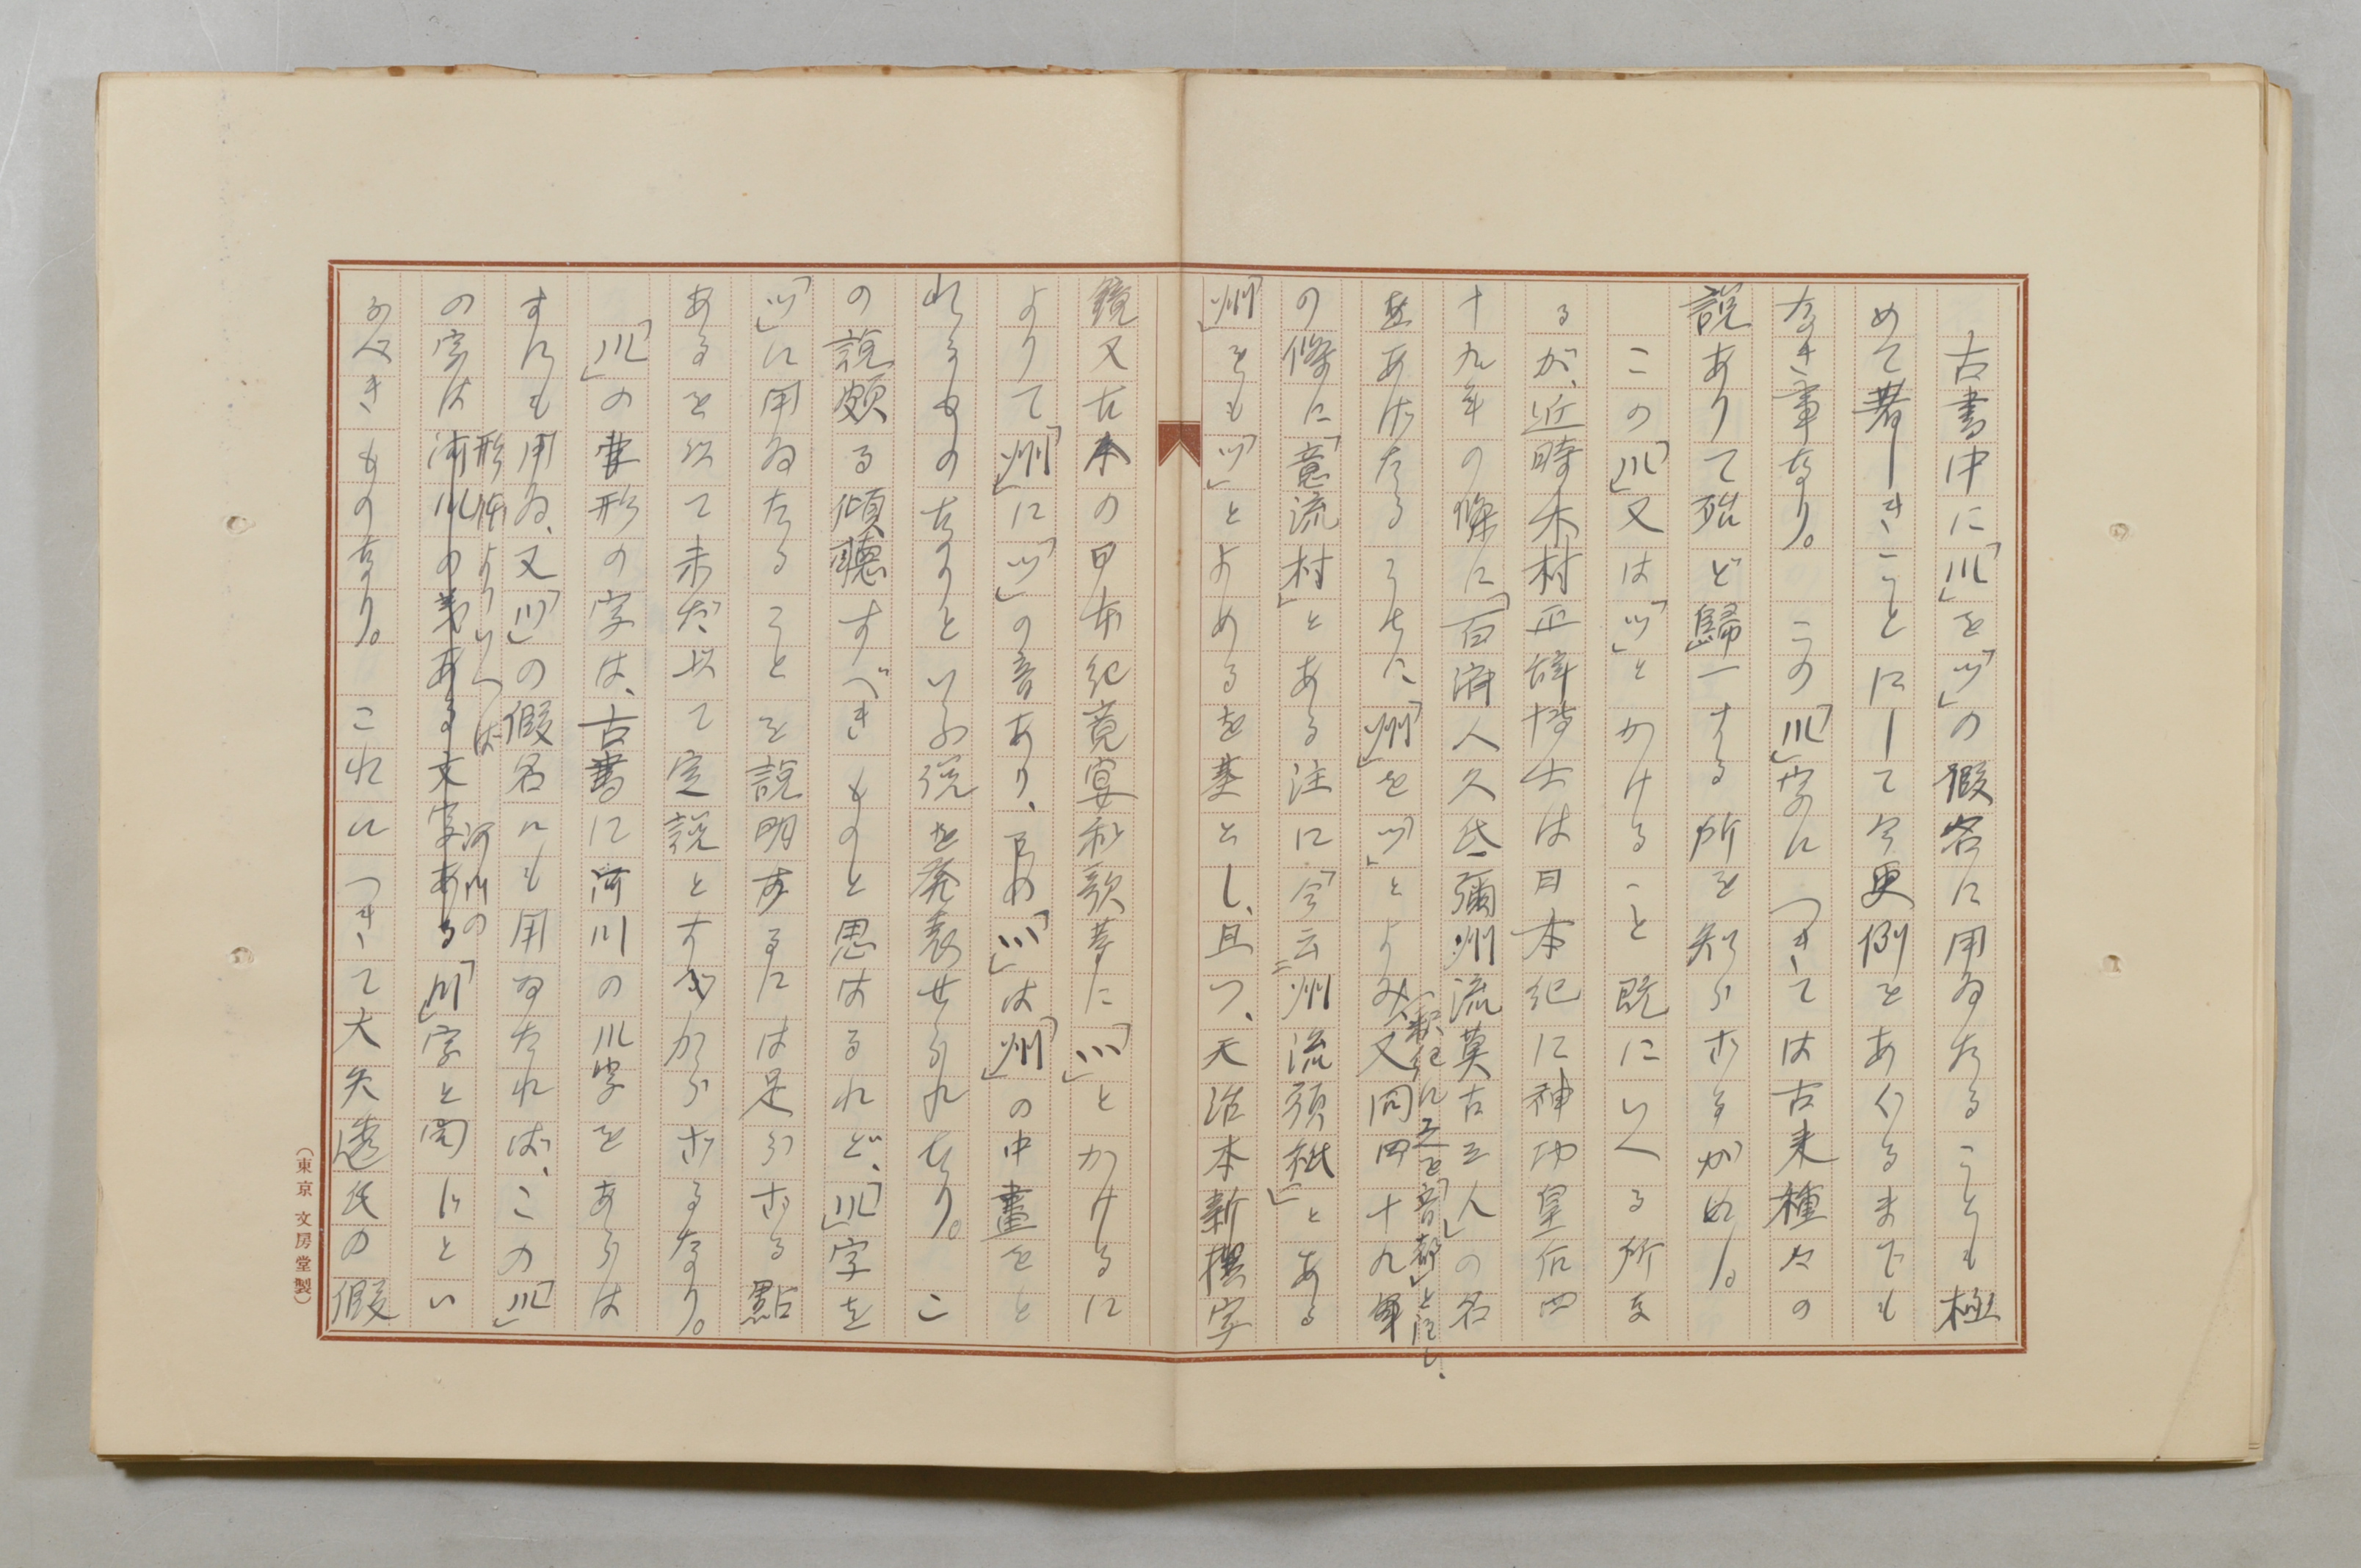 古書中に「川」を「ツ」の假名に用ゐたることも極
めて著しきことにして今更例をあぐるまでも
なき事なり。 この「川」字につきては古来種々の
説ありて殆ど歸一する所を知らざるが如し。
この「川」又は「ツ」とかけること既にいへる所な
るが、近時木村正辞博士は日本紀に神功皇后四
十九年の條に「百濟人久氐彌州流莫古二人」の名
をあげたるうちに、「州」を「ツ」とよみ、又同四十九年
(釈紀に之を「音都」と注し、
の條に「意流村」とある注に「今云二州流須祇一」とある
「州」をも「ツ」とよめるを基とし、且つ、天治本新撰字
鏡又古本の日本紀竟宴和歌等に「ツ」とかけるに
よりて「州」に「ツ」の音あり、「ツ」は「州」の中畫をと
れるものなりといふ説を発表せられたり。 こ
の説頗る傾聴すべきものと思はるれど、「川」字を
「ツ」に用ゐたることを説明するには足らざる點
あるを以て未だ以て定説とすべからざるなり。
「川」の字形の字は、古書に河川の川字をあらは
すにも用ゐ、又「川」の假名にも用ゐたれば、この「川」
形体よりいへば 河川の
の字は河川の義ある文字ある「川」字と同じとい
ふべきものなり。 これにつきて大矢透氏の假
(東京 文房堂製)